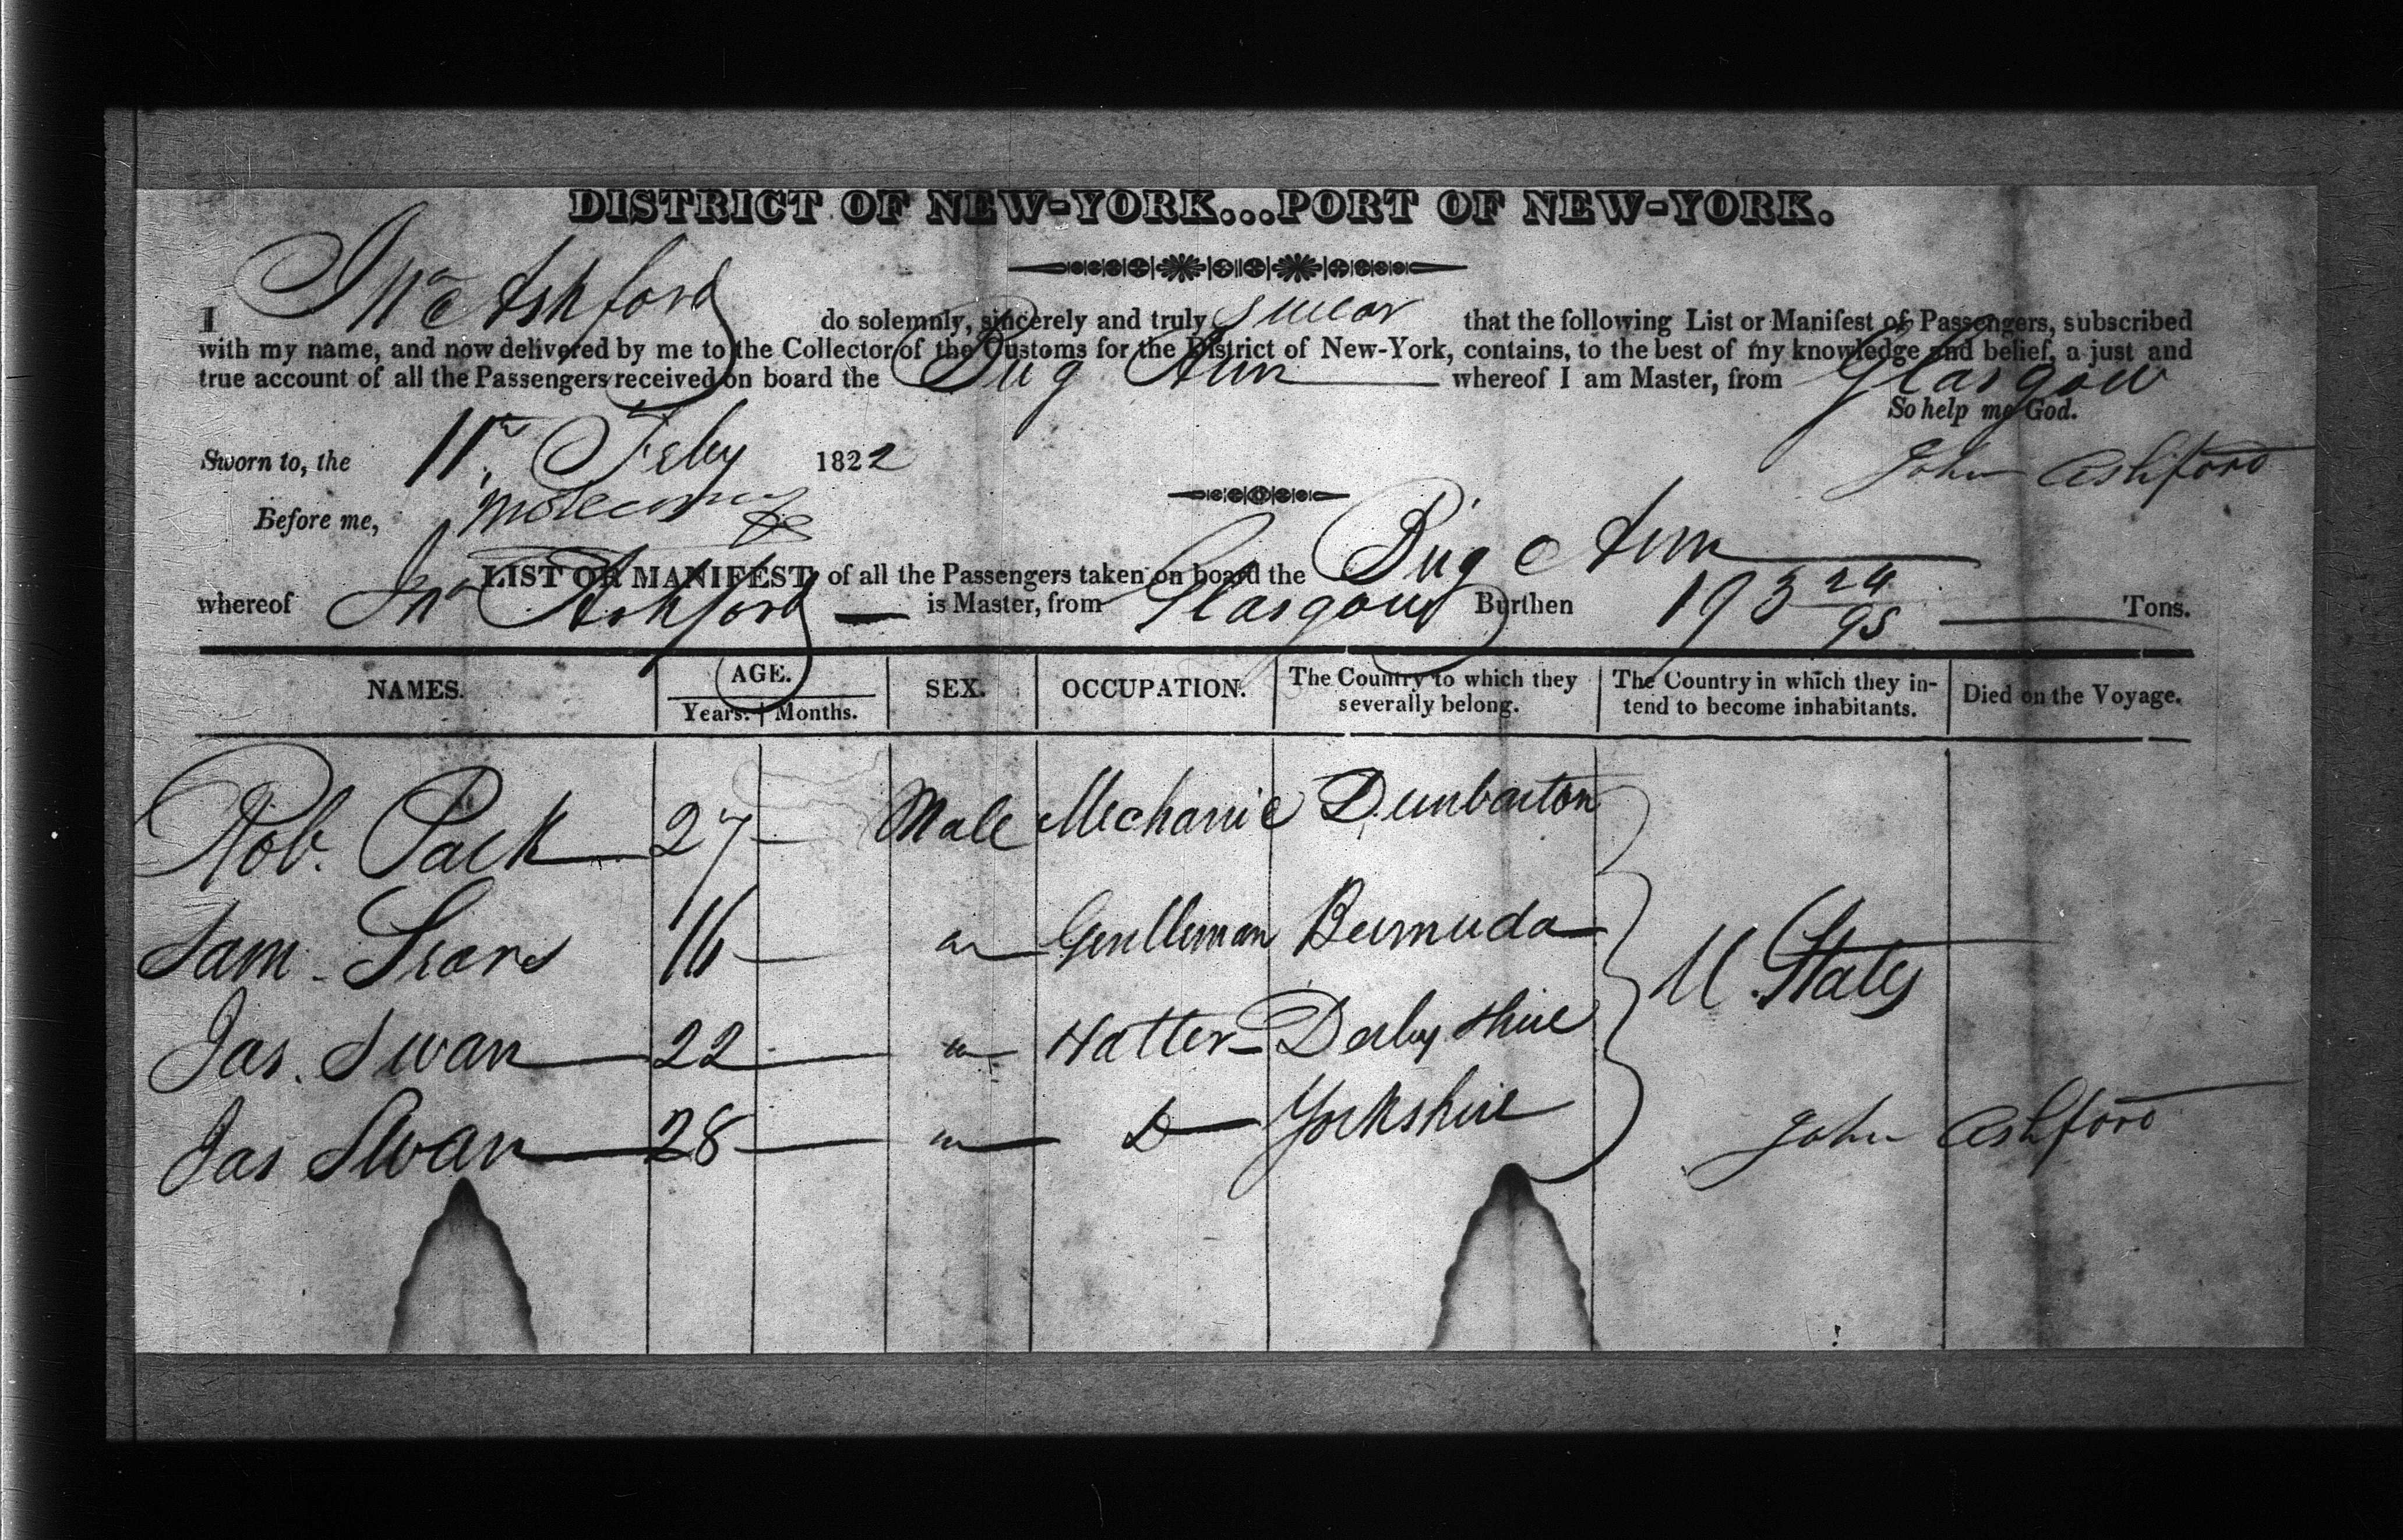 DISTRICT OF NEW-YORK...PORT OF NEW-YORK.
I Jno Ashford do solemnly, sincerely and truly swear that the following List or Manifest of Passengers, subscribed
with my name, and now delivered by me to the Collector of the Customs for the District of New-York, contains, to the best of my knowledge and belief, a just and
true account of all the Passengers received on board the Brig Ann whereof I am Master, from Glasgow
So help me God.
Sworn to, the 11th Feby 1822
John Ashford
Before me,
LIST OR MANIFEST of all the Passengers taken on board the Brig Ann
whereof Jno Ashford is Master, from Glasgow Burthen 193 24/95 Tons.
NAMES. AGE. SEX. OCCUPATION. The Country to which they severally belong. The Country in which they in-tend to become inhabitants. Died on the Voyage.
Years. Months.
Rob. Pack 27 Male Mechanic Dunbarton
Sam Sears 16 " Gentleman Bermuda
U. States
Jas. Swan 22 " Hatter Derbyshire
Jas Swan 28 " Do Yorkshire
John Ashford